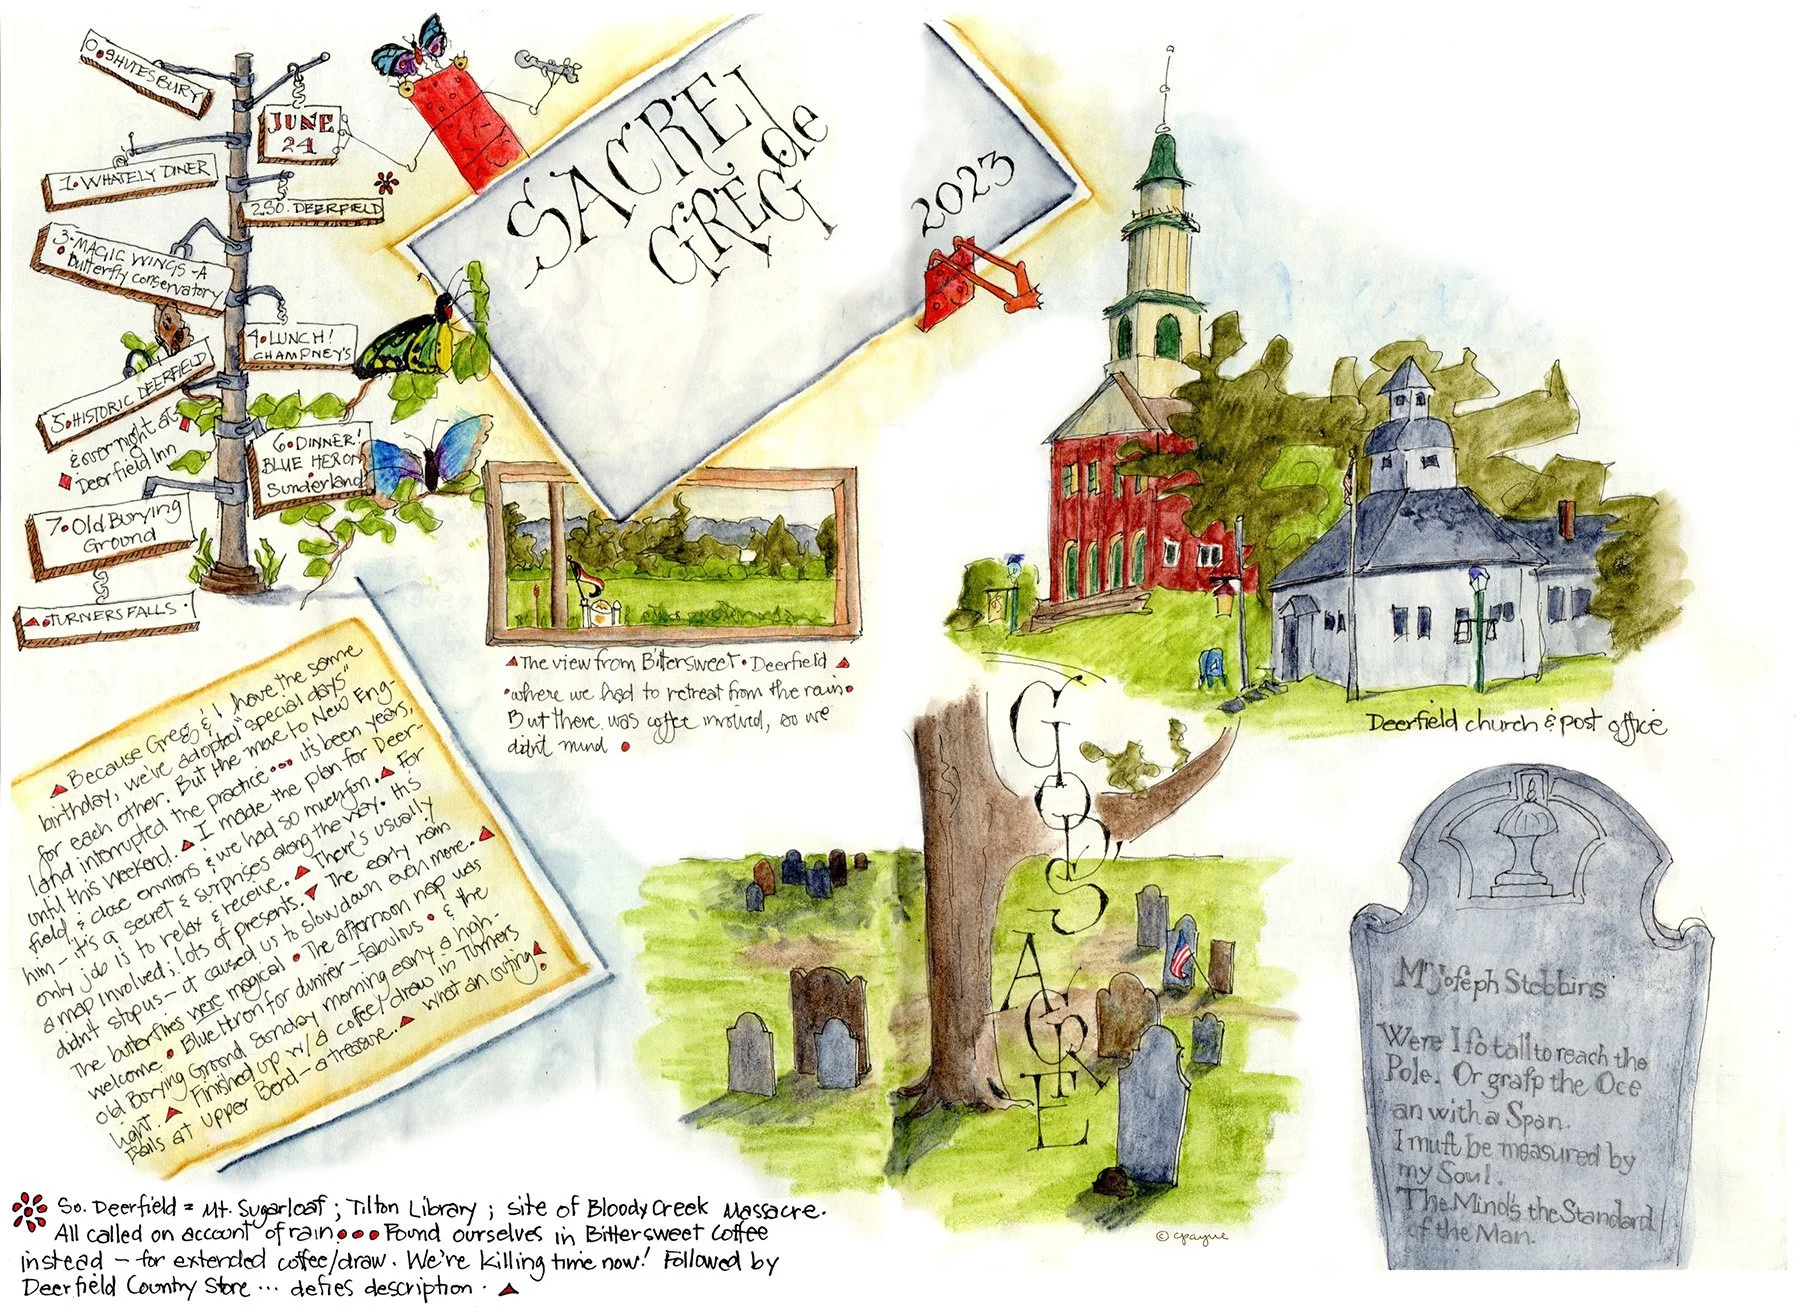 0. SHUTESBURY
JUNE
24
1. WHATELY DINER
2. SO. DEERFIELD
3. MAGIC WINGS - A
Butterfly conservatory
4. LUNCH!
CHAMPNEY'S
5. HISTORIC DEERFIELD
& overnight at
Deerfield Inn
6. DINNER!
BLUE HERON
Sunderland
7. Old Burying
Ground
TURNERS FALLS.
SACREI
de
GREGI
2023
The view from Bittersweet • Deerfield
where we had to retreat from the rain •
But there was coffee involved, so we
didn't mind •
Because Greg & I have the same
birthday, we've adopted "special days"
for each other. But the move to New Eng-
land interrupted the practice ... it's been years,
until this weekend. I made the plan for Deer-
field & close environs & we had so much fun. For
him - it's a secret & surprises along the way. His
only job is to relax & receive. There's usually
a map involved; lots of presents. The early rain
didn't stop us - it caused us to slow down even more.
The butterflies were magical • The afternoon nap was
welcome • Blue Heron for dinner - fabulous • & the
Old Burying Ground Sunday morning early a high-
light. Finished up w/ a coffee/draw in Turners
Falls at Upper Bend - a treasure... What an outing!
Deerfield church & post office
GOD'S
ACRE
Mr Joseph Stebbins
Were I ſo tall to reach the
Pole. Or graſp the Oce
an with a Span.
I muſt be measured by
my Soul.
The Mind's the Standard
of the Man.
© cpayne
So. Deerfield = Mt. Sugarloaf; Tilton Library; site of Bloody Creek Massacre.
All called on account of rain... Found ourselves in Bittersweet Coffee
instead - for extended coffee/draw. We're killing time now! Followed by
Deerfield Country Store ... defies description.